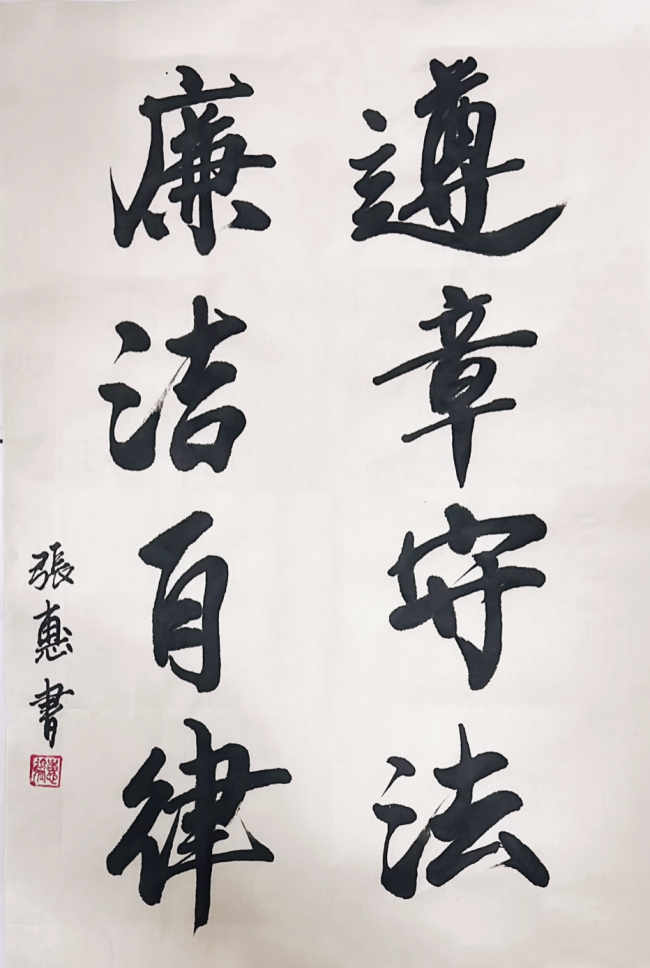 遵章守法
廉洁自律
張惠書